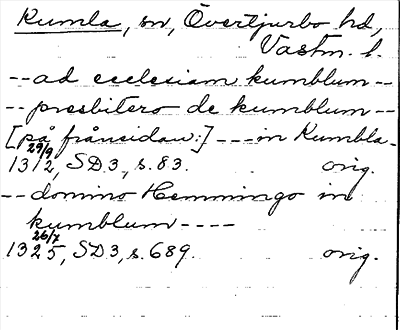 Kumla, sn, Övertjurbo hd,
Västm. l.
--ad ecclesiam kumblum--
--presbitero de kumblum--
[på frånsidan:] ---in Kumbla-
1312 29/9, SD3, s. 83. orig.
--domino Hemmingo in
kumblum----
1325 26/7, SD3, s. 689. orig.